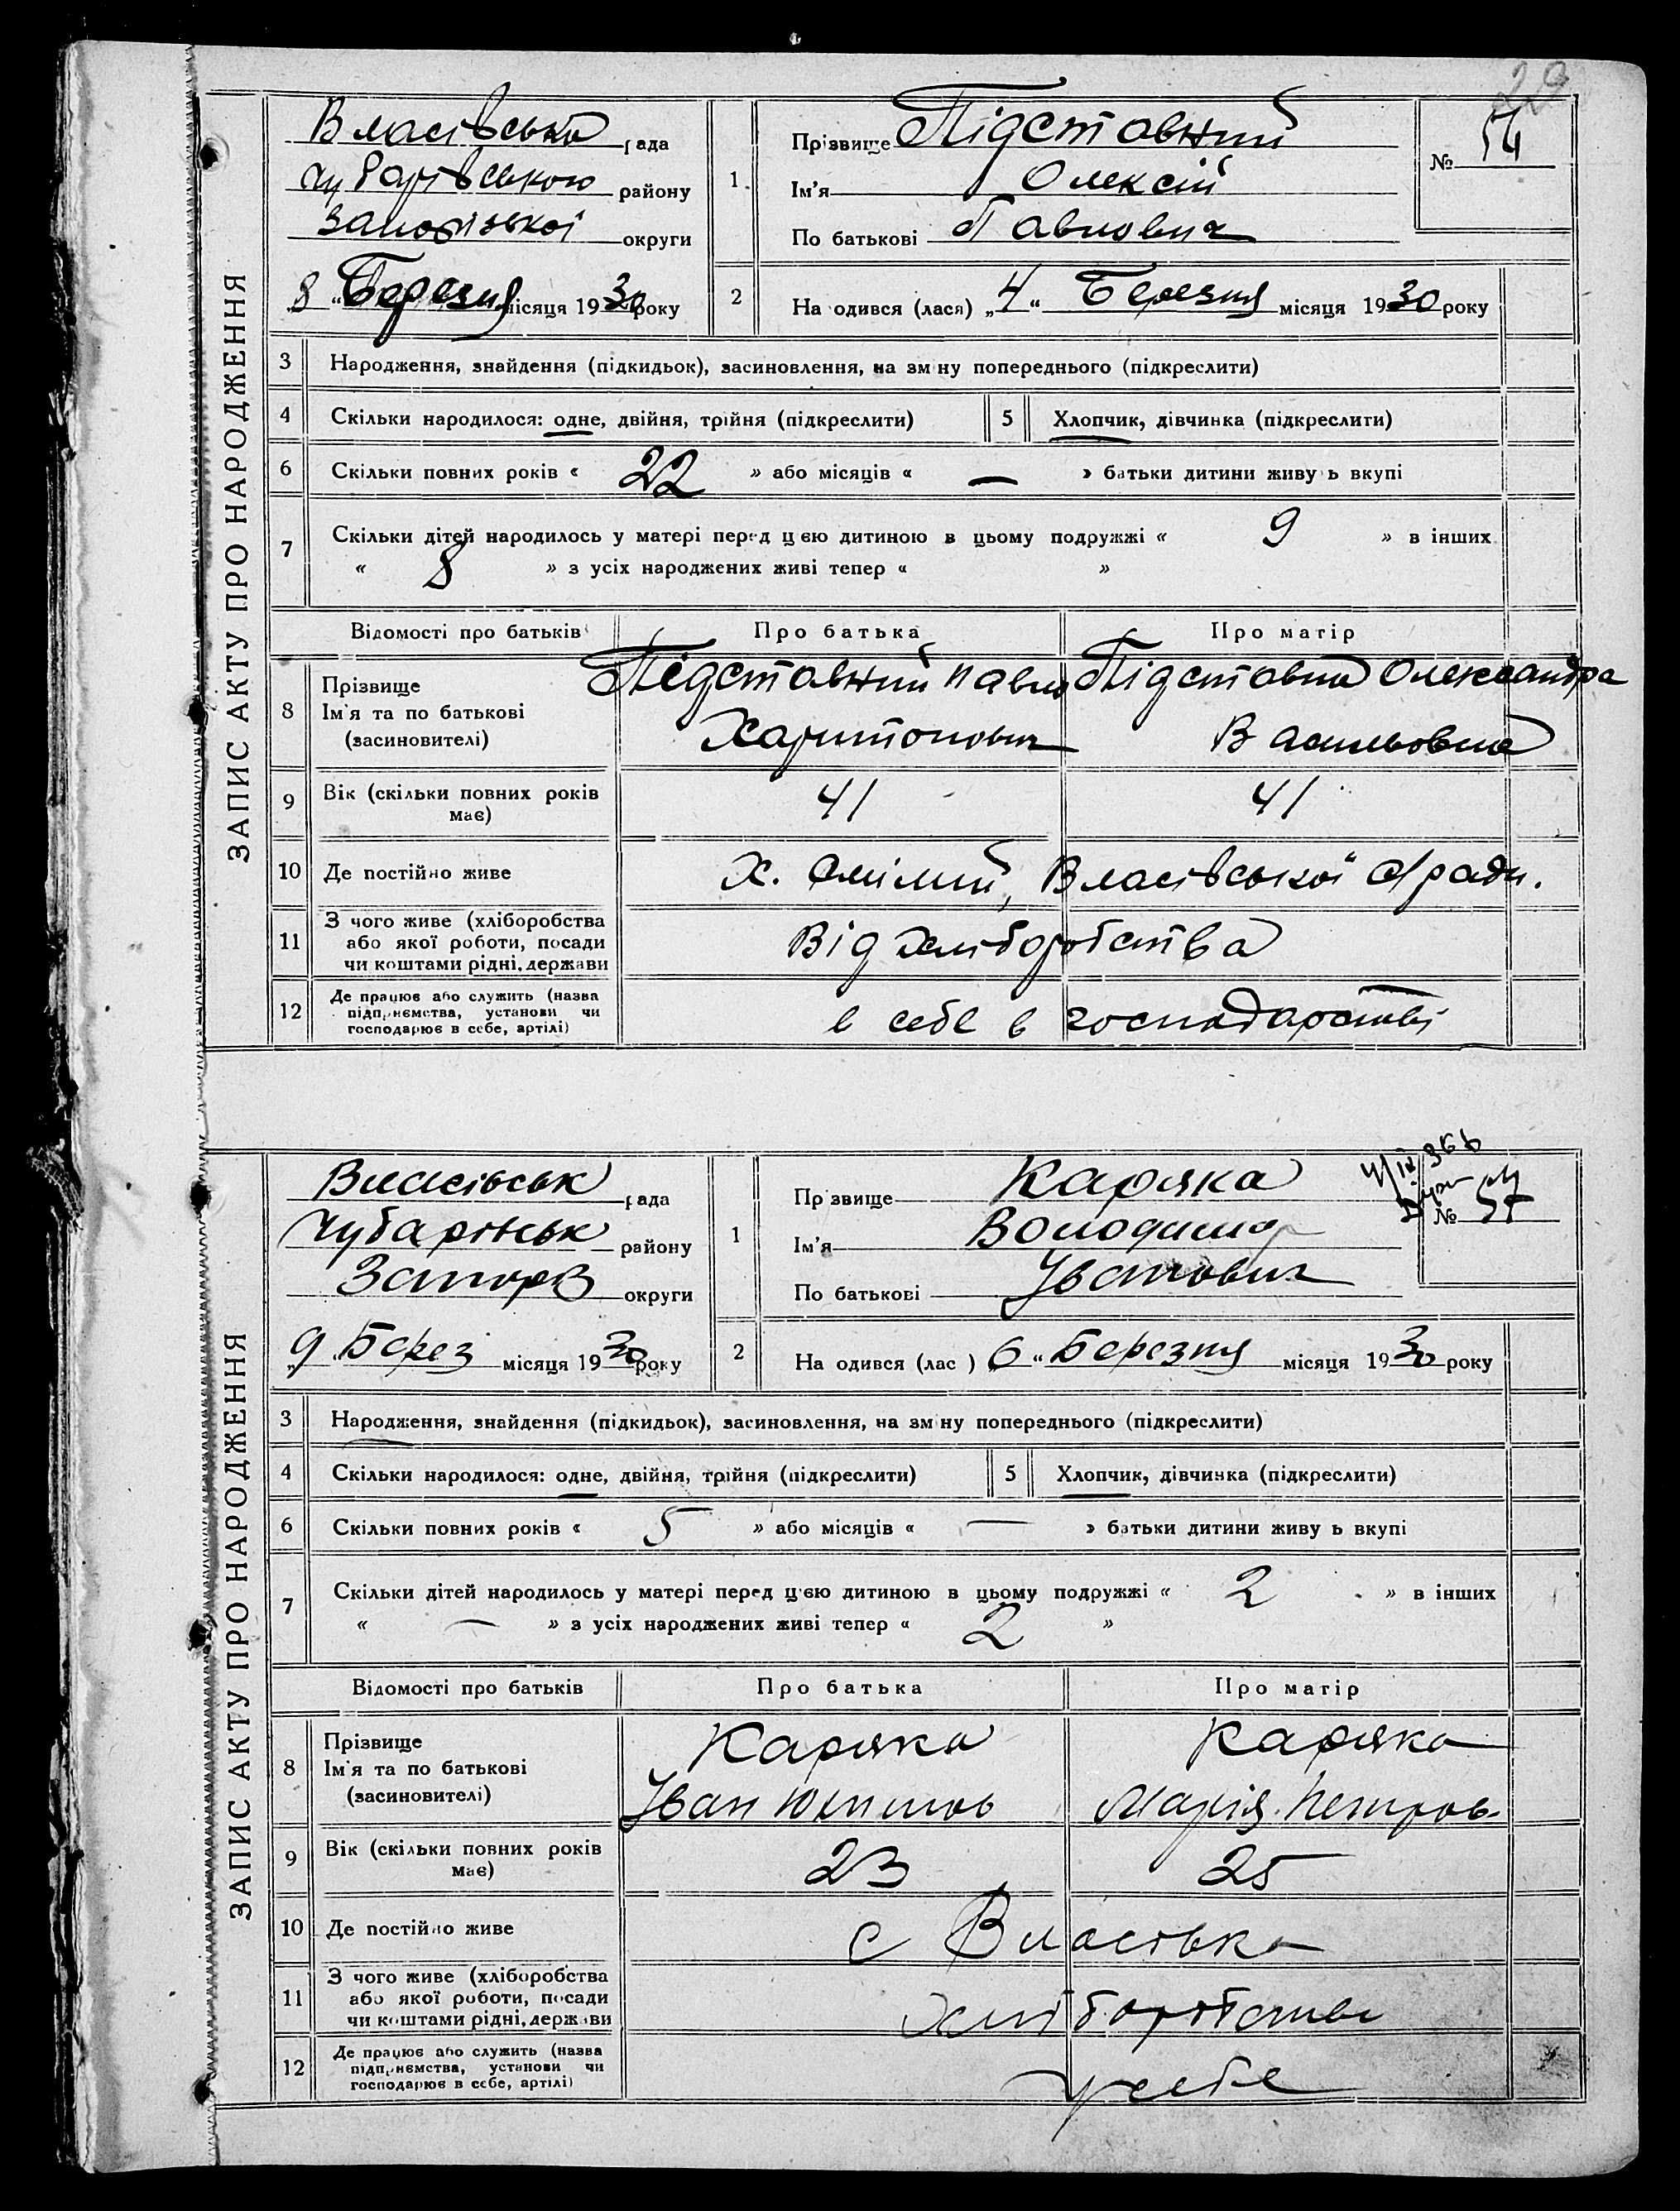 29
ЗАПИС АКТУ ПРО НАРОДЖЕННЯ
Власівська рада
Чубарівського району
Запорізької округи
8 "Березня місяця 1930 року
1 Прізвище Підставний
Ім'я Олексій
По батькові Павлович
№ 54
2 На одився (лася) „4“ Березня місяця 1930 року
3 Народження, знайдення (підкидьок), засиновлення, на зміну попереднього (підкреслити)
4 Скільки народилося: одне, двійня, трійня (підкреслити) 5 Хлопчик, дівчинка (підкреслити)
6 Скільки повних років « 22 » або місяців « — » батьки дитини живу ь вкупі
7 Скільки дітей народилось у матері перед цією дитиною в цьому подружжі « 9 » в інших
« 8 » з усіх народжених живі тепер « »
Відомості про батьків Про батька Про матір
8 Прізвище
Ім'я та по батькові
(засиновителі)
Підставний Павло
Харитонович
Підставна Олександра
Васильовна
9 Вік (скільки повних років має) 41 41
10 Де постійно живе х. Смілий, Власівської с/ради.
11 З чого живе (хліборобства
або якої роботи, посади
чи коштами рідні, держави
Від хліборобства
12 Де працює або служить (назва
підприємства, установи чи
господарює в себе, артілі)
в себе в господарстві
ЗАПИС АКТУ ПРО НАРОДЖЕННЯ
Власівськ рада
Чубарівськ району
Запоріз округи
„9“ Берез місяця 1930 року
1 Пр звище Каряка
Ім'я Володимир
По батькові Іванович
№ 57
2 На одився (лас ) 6 “ Березня місяця 1930 року
3 Народження, знайдення (підкидьок), засиновлення, на зміну попереднього (підкреслити)
4 Скільки народилося: одне, двійня, трійня (підкреслити) 5 Хлопчик, дівчинка (підкреслити)
6 Скільки повних років « 5 » або місяців « — » батьки дитини живу ь вкупі
7 Скільки дітей народилось у матері перед цією дитиною в цьому подружжі « 2 » в інших
« — » з усіх народжених живі тепер « 2 »
Відомості про батьків Про батька Про матір
8 Прізвище
Ім'я та по батькові
(засиновителі)
Каряка
Іван
Каряка
Марія Петров.
9 Вік (скільки повних років має) 23 25
10 Де постійно живе с Власівка
11 З чого живе (хліборобства
або якої роботи, посади
чи коштами рідні, держави
хліборобства
12 Де працює або служить (назва
підприємства, установи чи
господарює в себе, артілі)
у себе